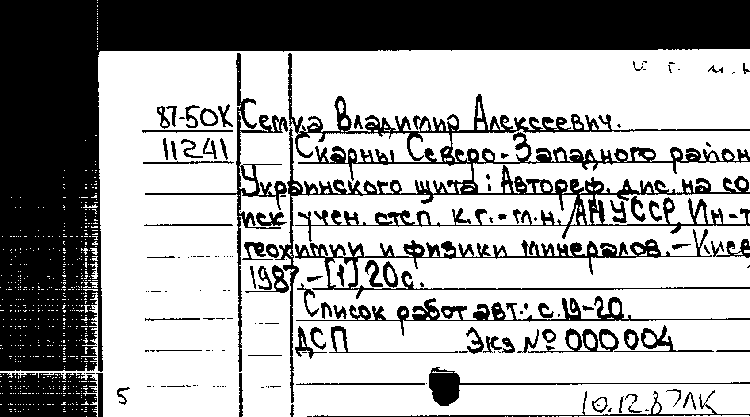 87-50К Семка, Владимир Алексеевич.
11241 Скарны Северо-Западного район
Украинского щита: Автореф. дис. на со
иск учен. степ. к.г.-м.н. /АН УССР, Ин-т
геохимии и физики минералов.-Киев
1987.-[1],20с.
Список работ авт.: с.19-20.
ДСП Экз № 000004
5 10.12.87ЛК